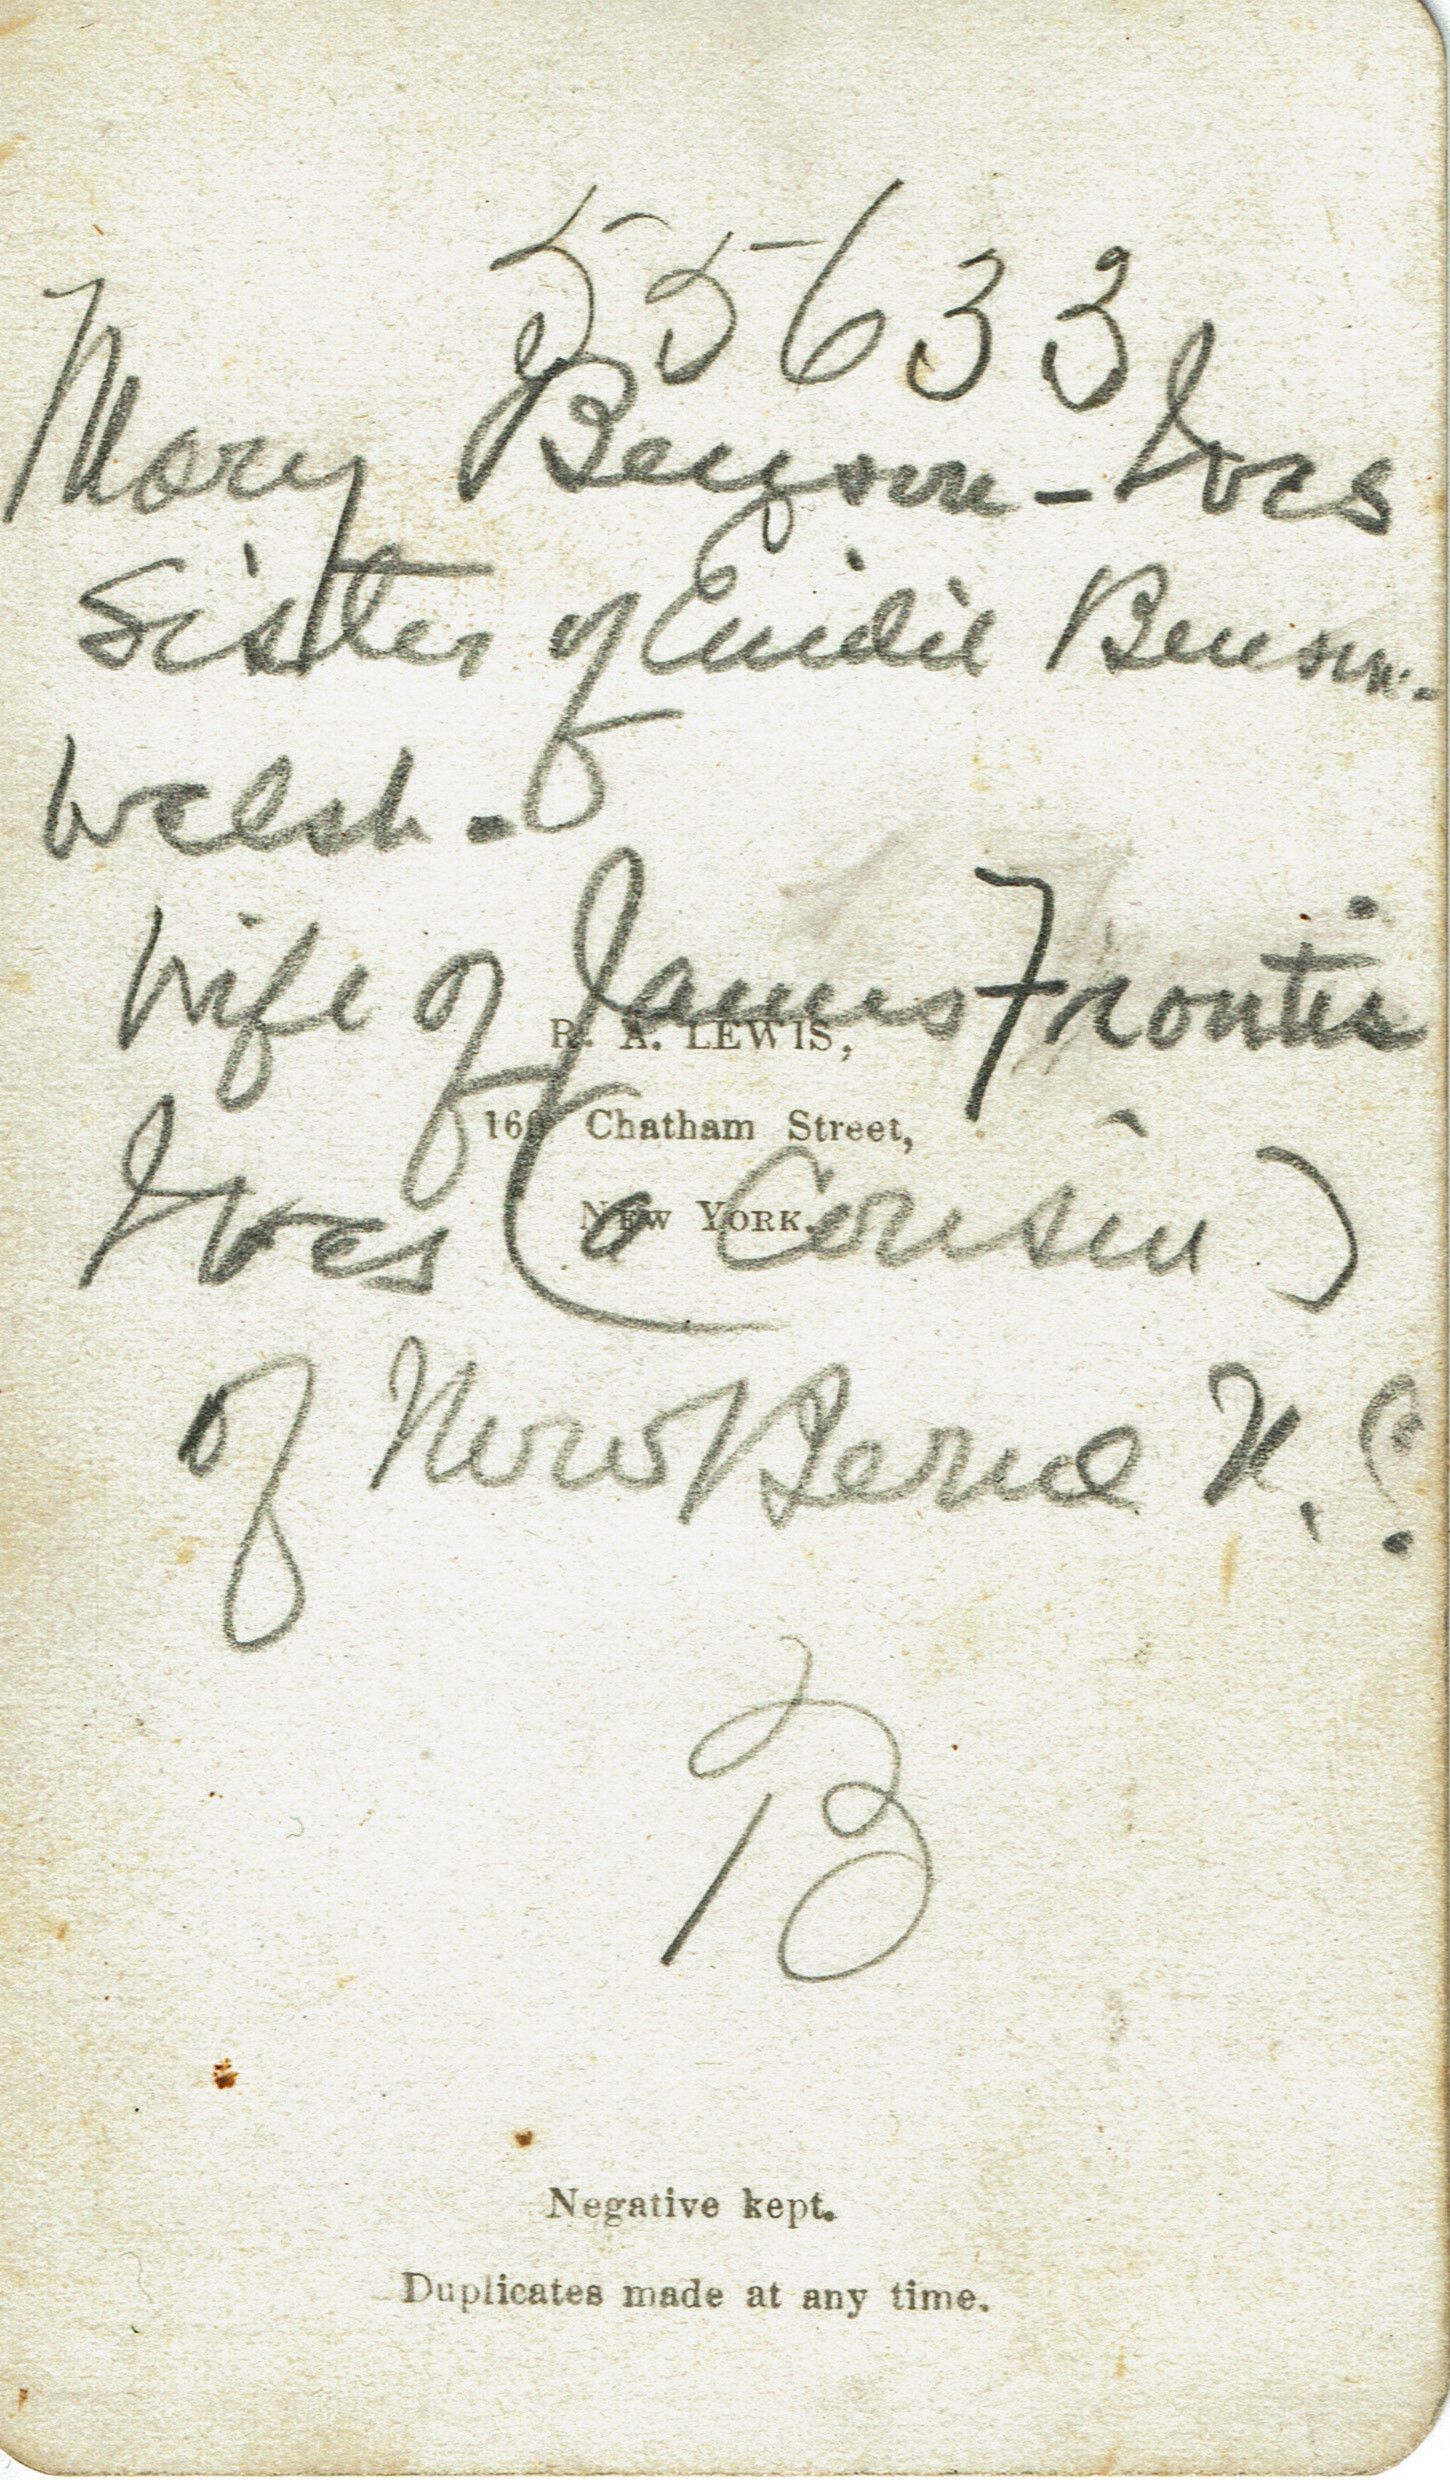 55633
Mary Benson-Ives
Sister of Emilie Benson-
Welsh.
Wife of James Frontis
R. A. LEWIS,
Chatham Street,
NEW YORK.
Ives (a Cousin)
of New Berne N.C.
B
Negative kept.
Duplicates made at any time.